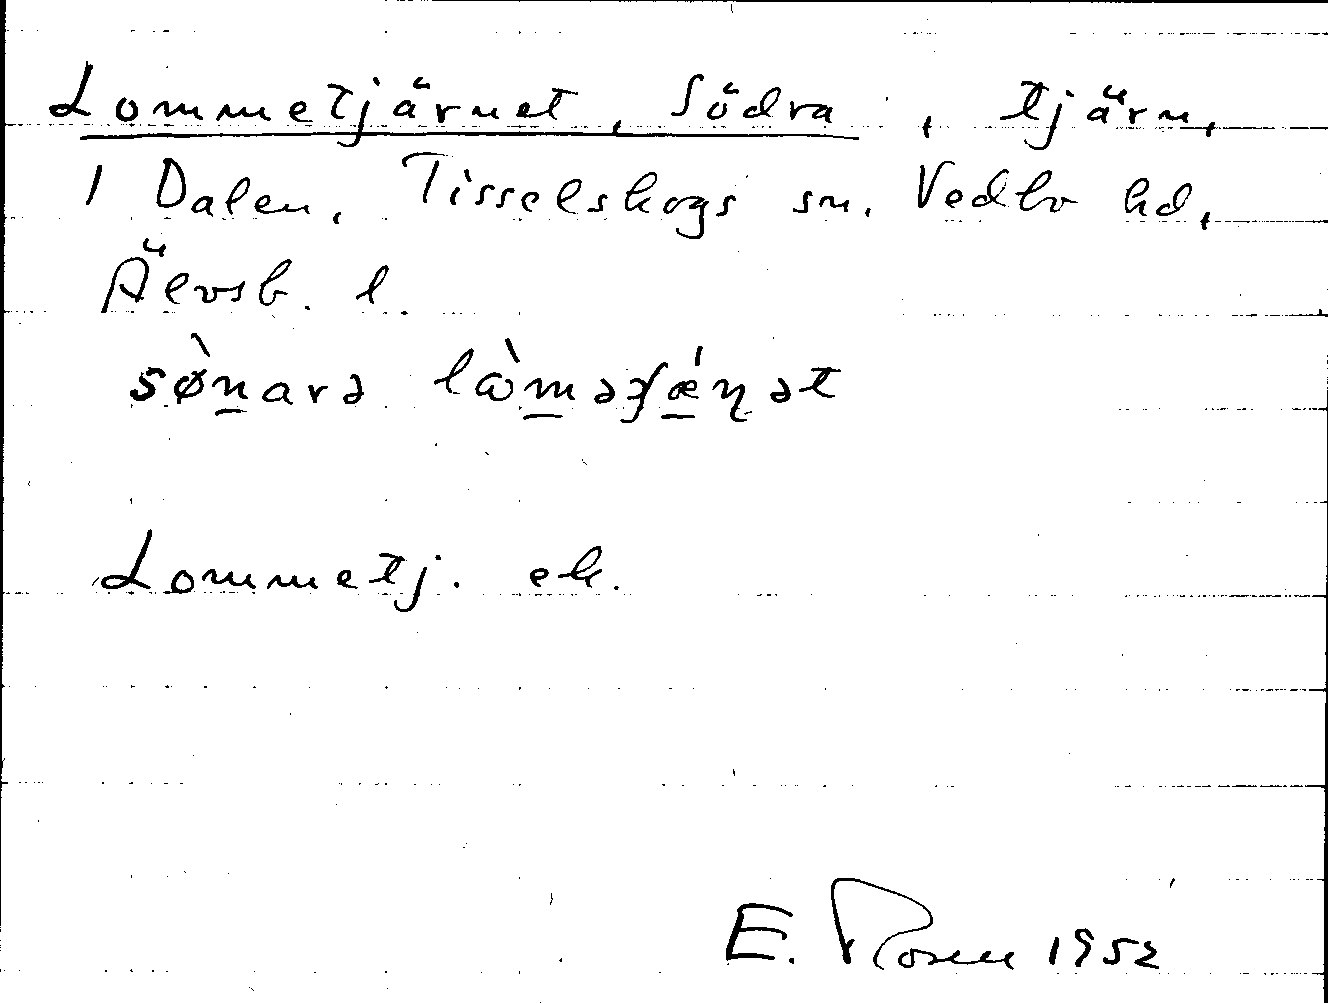 Lommetjärnet, Södra, tjärn,
1 Dalen, Tisselskogs sn. Vedbo hd,
Älvsb. l.
sø̀n̲arə lɷ̀m̲əʄǽ̲ɳət
Lommetj. ek.
E. Rosen 1952